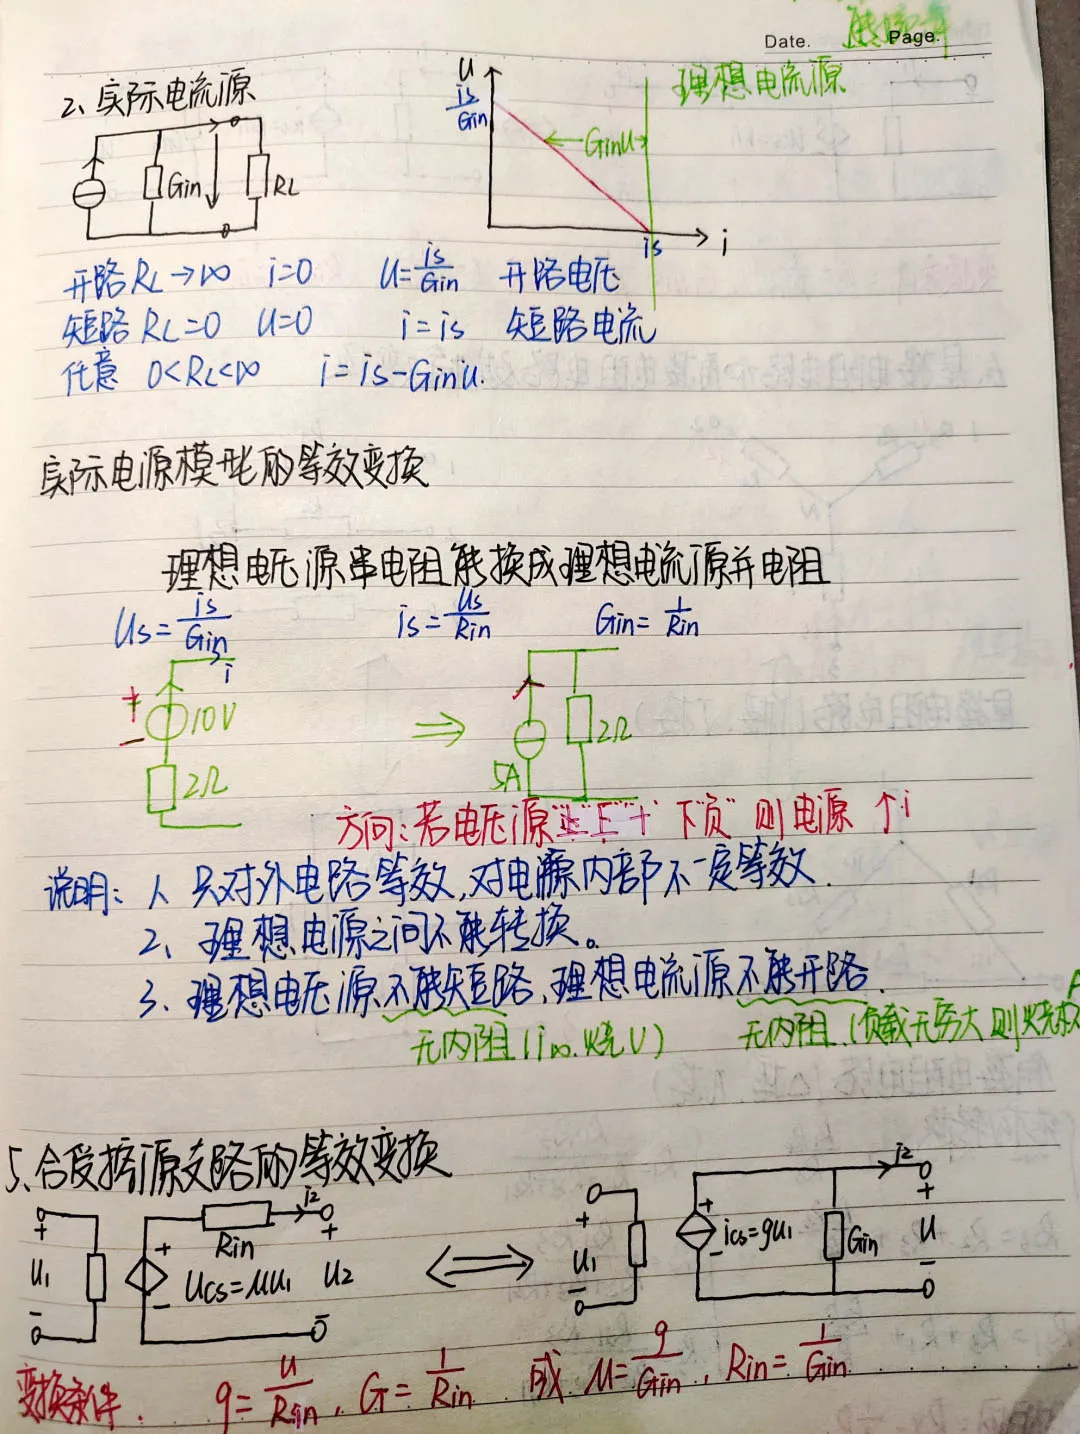 Date. Page.
2、实际电流源
U
is/Gin
理想电流源
GinU
is
i
Gin
RL
开路 RL→∞ i=0 U=is/Gin 开路电压
短路 RL=0 U=0 i=is 短路电流
任意 0<RL<∞ i=is-GinU.
实际电源模形的等效变换
理想电压源串电阻能换成理想电流源并电阻
Us=is/Gin is=Us/Rin Gin=1/Rin
i
+
-
10V
2Ω
⇒
5A
2Ω
方向:若电压源 上"+" 下"负" 则电源 ↑i
说明: 1、只对外电路等效,对电源内部不一定等效.
2、理想电源之间不能转换。
3、理想电压源不能短路、理想电流源不能开路.
无内阻(i∞.烧V) 无内阻.(负载无穷大则烧
5、含受控源支路的等效变换
+ U1 -
Rin
i2
+ Ucs=μU1 -
+ U2 -
⇔
+ U1 -
+ ics=gu1 -
Gin
i2
+ U -
变换条件. g=u/Rin, G=1/Rin 或 μ=g/Gin, Rin=1/Gin